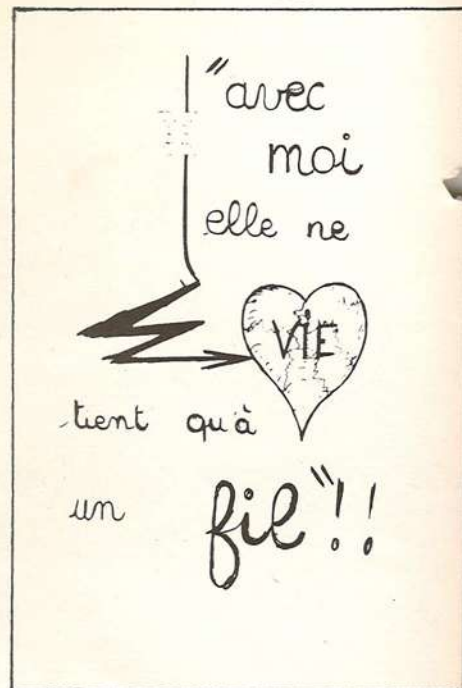 "avec
moi
elle ne
VIE
tient qu'à
un fil"!!